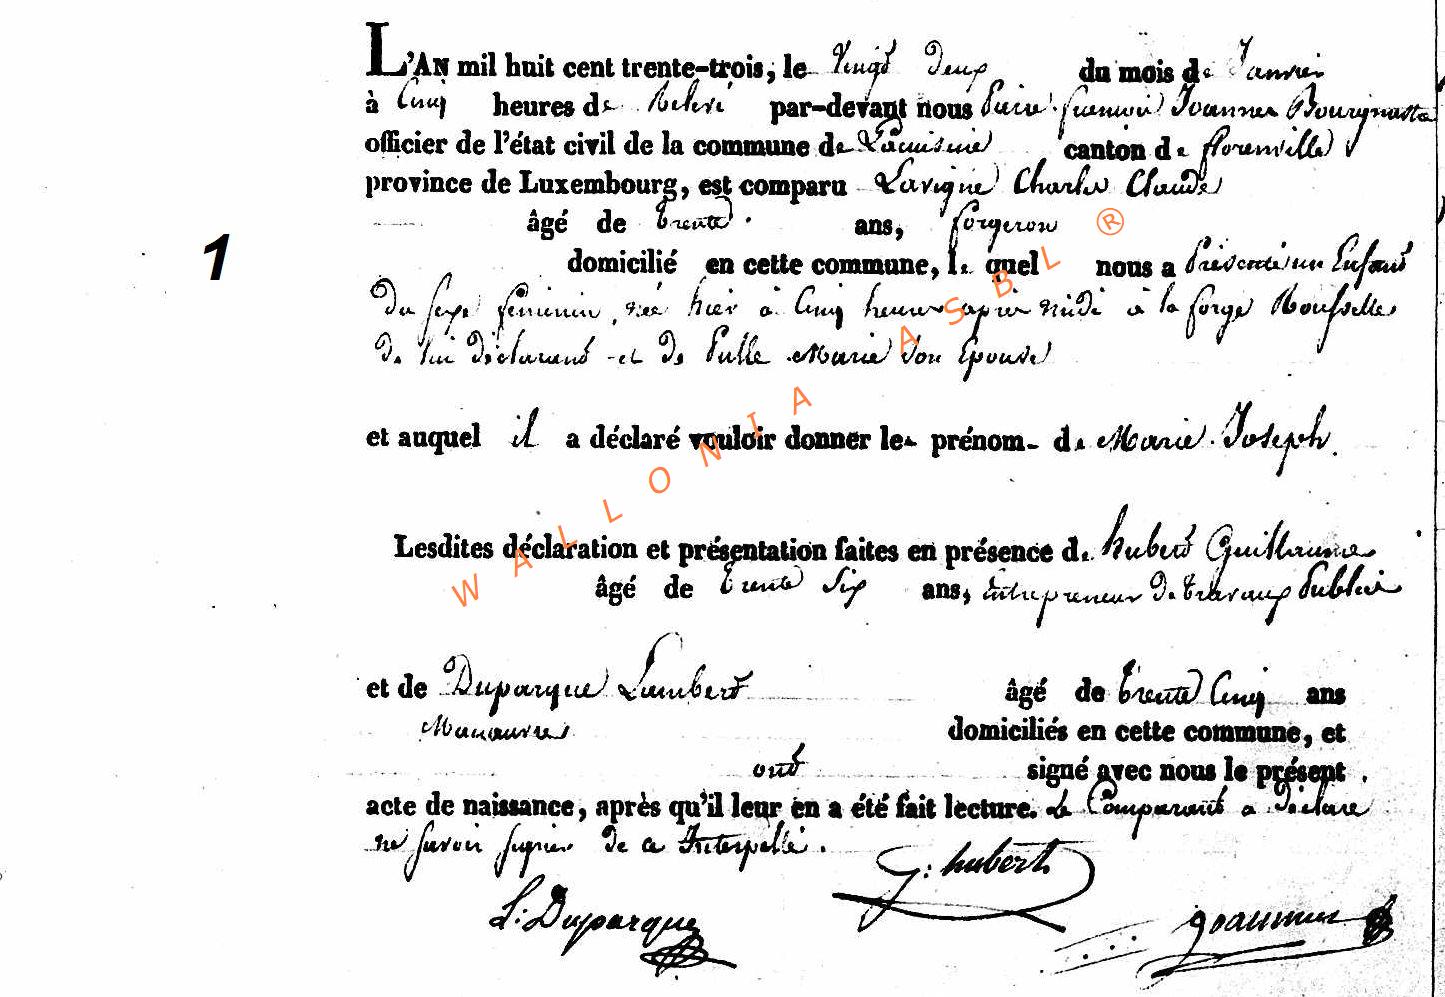 L'AN mil huit cent trente-trois, le vingt deux du mois de Janvier
à Cinq heures de Relevé par-devant nous Joannes Bourgmestre
officier de l'état civil de la commune de Lacuisine canton de florenville
province de Luxembourg, est comparu Lavigne Charles Claude
âgé de trente ans, forgeron
domicilié en cette commune, le quel nous a Présenté un Enfant
1
Du sexe féminin, née hier à Cinq heures après midi à la forge Rousselle
de lui déclarant et de Pulle Marie son Epouse
et auquel il a déclaré vouloir donner le prénom de Marie Joseph.
Lesdites déclaration et présentation faites en présence de hubert Guillaume
âgé de trente Six ans, Entrepreneur de travaux Publics
et de Duparque Lambert âgé de trente Cinq ans
Manœuvre domiciliés en cette commune, et
ont signé avec nous le présent
acte de naissance, après qu'il leur en a été fait lecture. Le Comparant a Déclaré
ne savoir signer de ce Interpellé.
G: hubert
L: Duparque
Joannes
WALLONIA ASBL ®